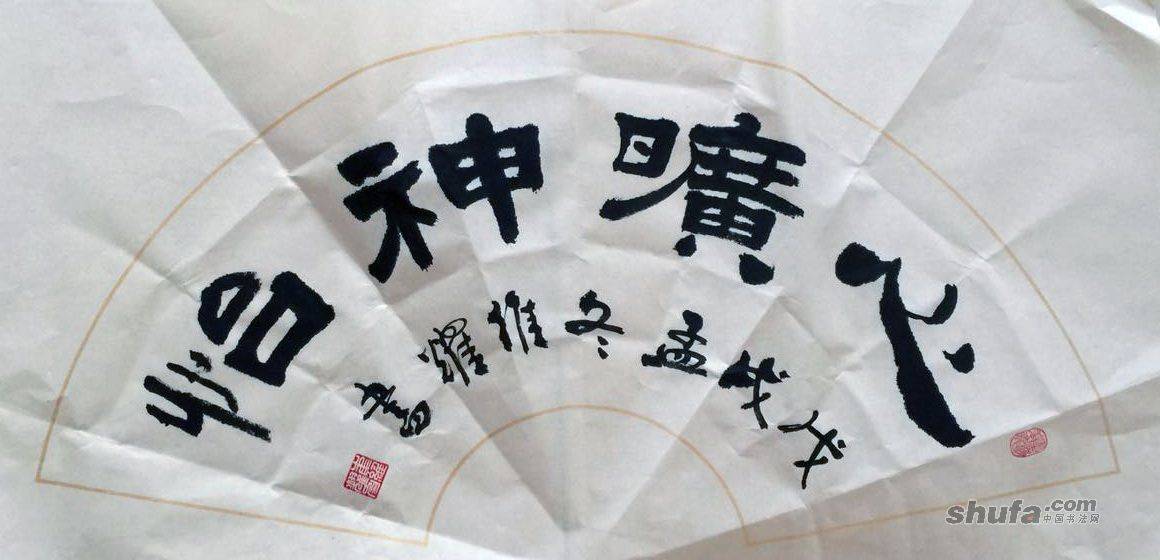 心曠神怡
戊戌孟冬維耀書
shufa.com
中国书法网